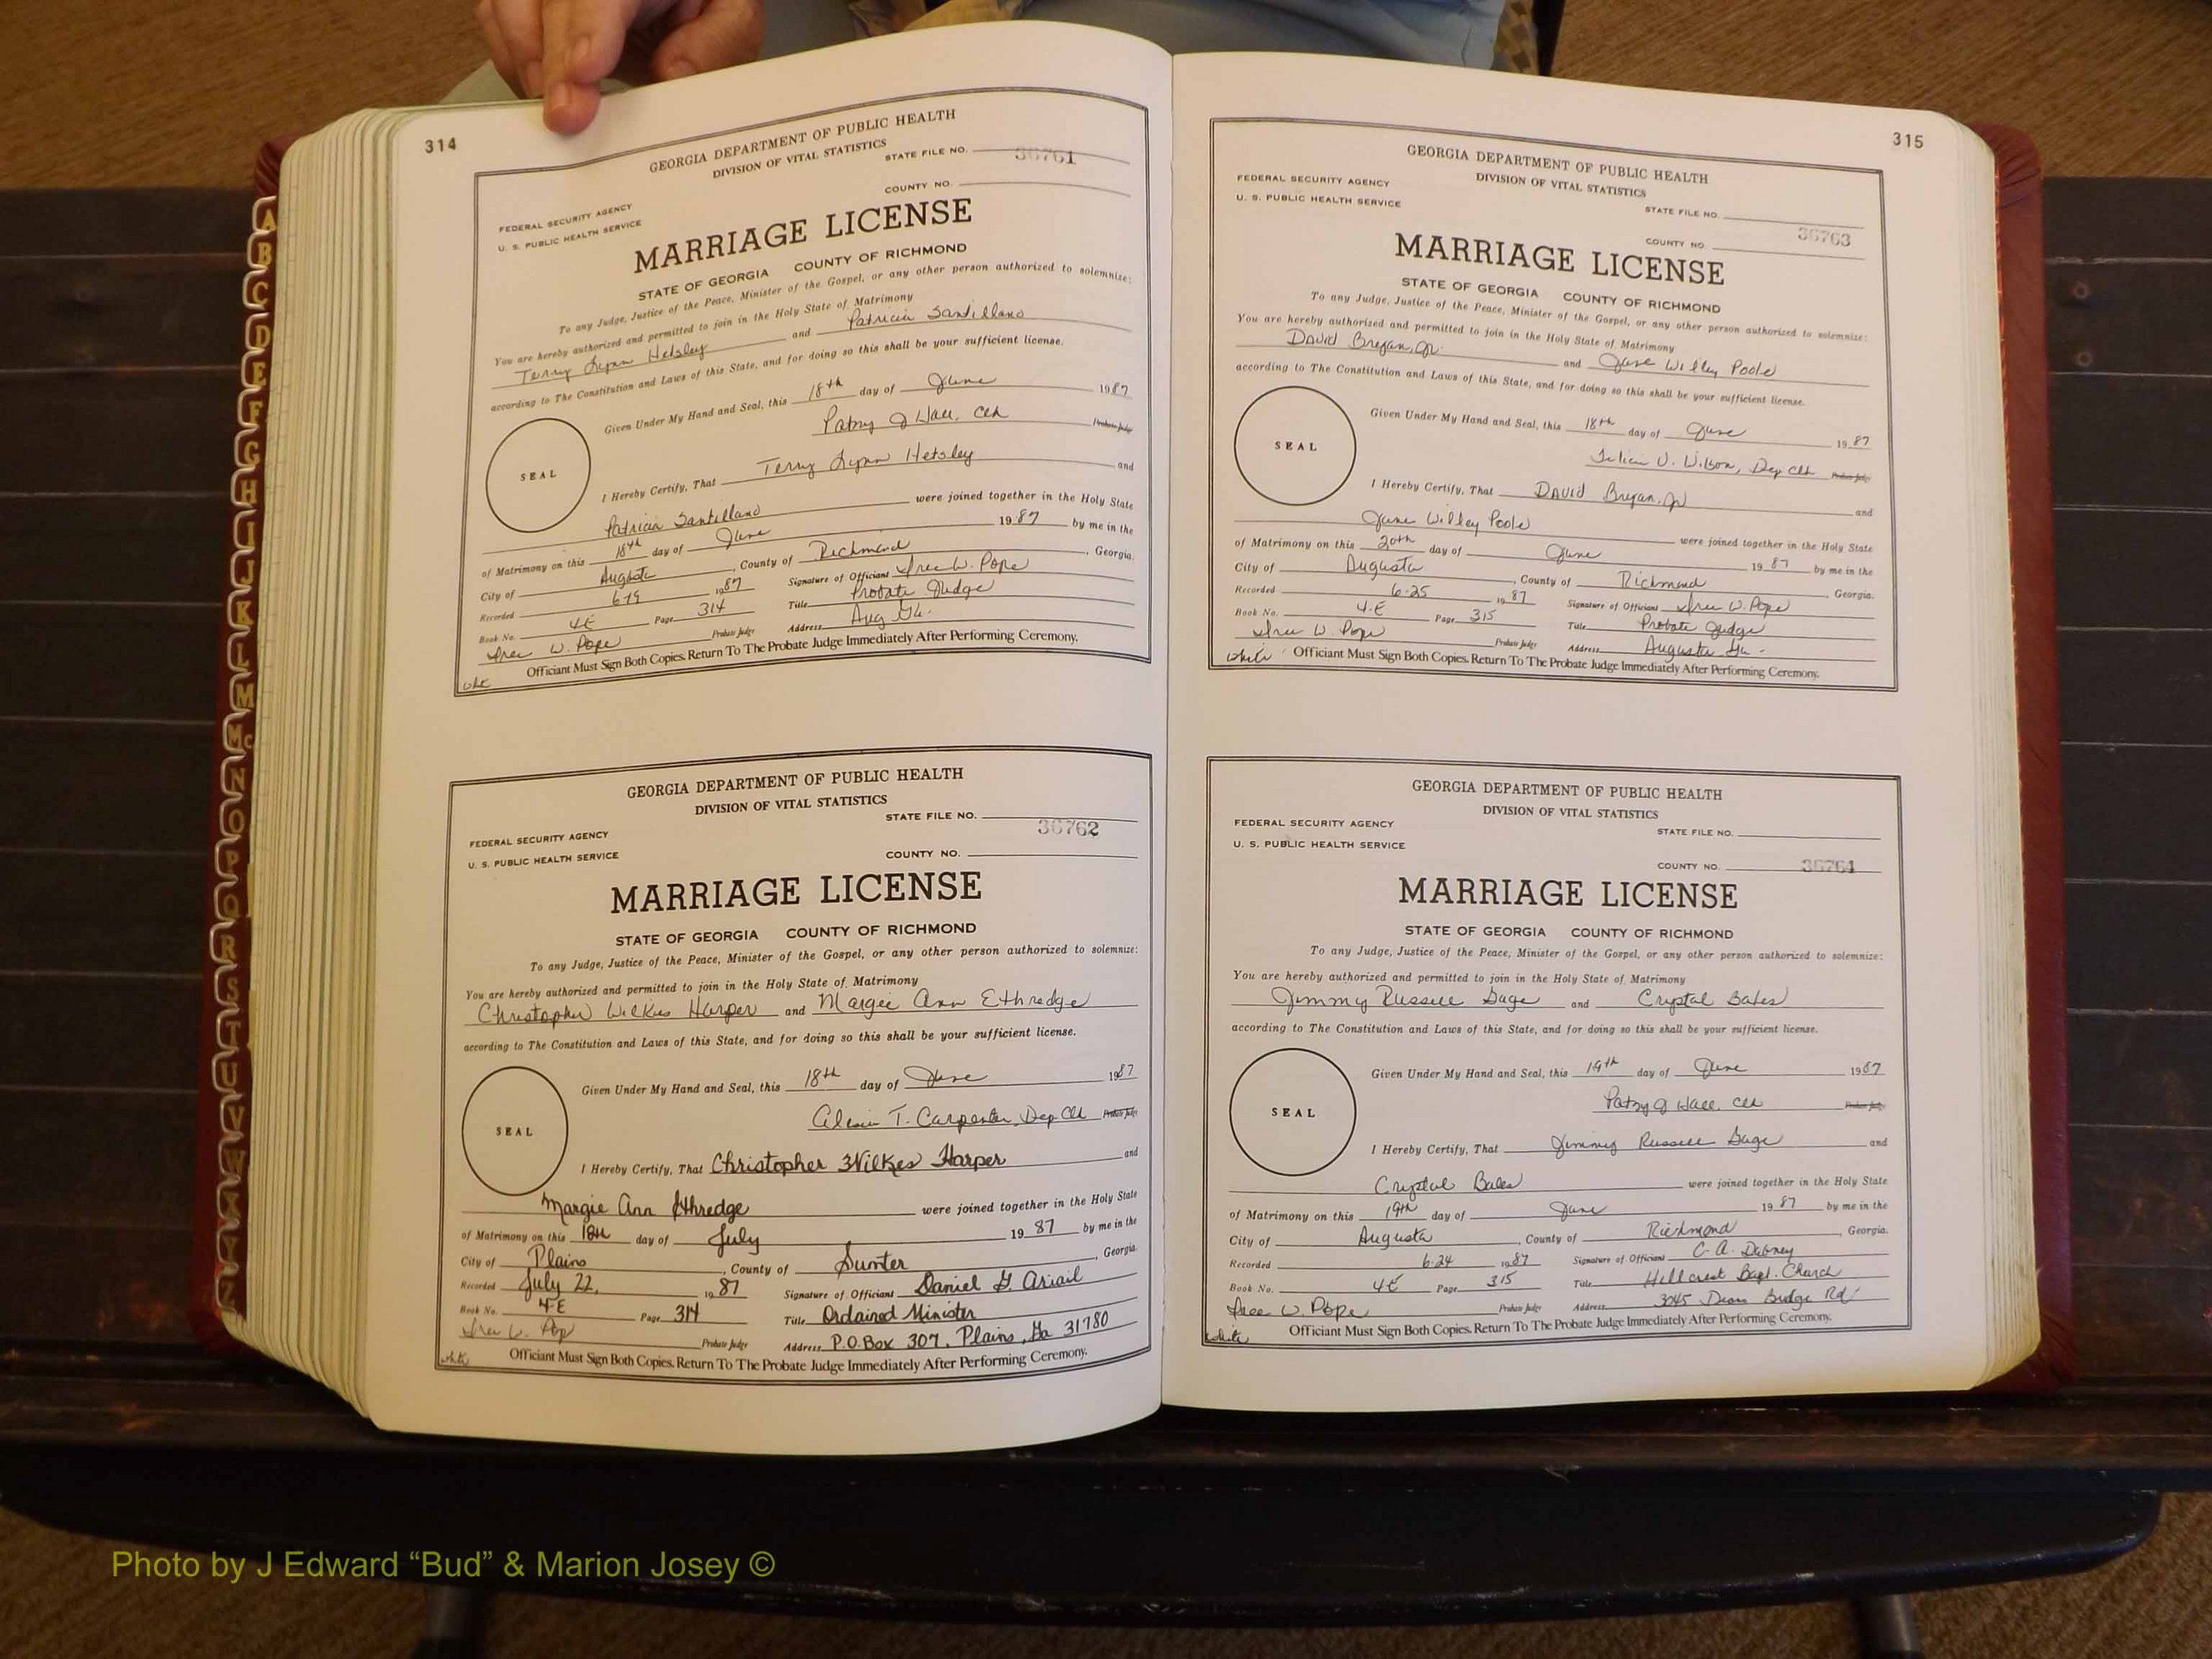 314
GEORGIA DEPARTMENT OF PUBLIC HEALTH
DIVISION OF VITAL STATISTICS
STATE FILE NO. 36761
COUNTY NO.
FEDERAL SECURITY AGENCY
U. S. PUBLIC HEALTH SERVICE
MARRIAGE LICENSE
STATE OF GEORGIA COUNTY OF RICHMOND
To any Judge, Justice of the Peace, Minister of the Gospel, or any other person authorized to solemnize:
You are hereby authorized and permitted to join in the Holy State of Matrimony
Terry Lynn Helsley and Patricia Santillano
according to The Constitution and Laws of this State, and for doing so this shall be your sufficient license.
Given Under My Hand and Seal, this 18th day of June 1987
Patsy J Hall, Clk Probate Judge
SEAL
I Hereby Certify, That Terry Lynn Helsley and
Patricia Santillano were joined together in the Holy State
of Matrimony on this 18th day of June 1987 by me in the
City of Augusta, County of Richmond, Georgia.
Recorded 6-19 1987 Signature of Officiant W. Pope
Book No. 4E Page 314 Title Probate Judge
W. Pope Probate Judge Address Aug Ga.
Officiant Must Sign Both Copies. Return To The Probate Judge Immediately After Performing Ceremony.
GEORGIA DEPARTMENT OF PUBLIC HEALTH
DIVISION OF VITAL STATISTICS
STATE FILE NO. 36762
FEDERAL SECURITY AGENCY
U. S. PUBLIC HEALTH SERVICE
COUNTY NO.
MARRIAGE LICENSE
STATE OF GEORGIA COUNTY OF RICHMOND
To any Judge, Justice of the Peace, Minister of the Gospel, or any other person authorized to solemnize:
You are hereby authorized and permitted to join in the Holy State of Matrimony
Christopher Wilkes Harper and Margie Ann Ethredge
according to The Constitution and Laws of this State, and for doing so this shall be your sufficient license.
Given Under My Hand and Seal, this 18th day of June 1987
T. Carpenter, Dep Clk Probate Judge
SEAL
I Hereby Certify, That Christopher Wilkes Harper and
Margie Ann Ethredge were joined together in the Holy State
of Matrimony on this 18th day of July 1987 by me in the
City of Plains, County of Sumter, Georgia
Recorded July 22, 1987 Signature of Officiant Daniel G. Ariail
Book No. 4-E Page 314 Title Ordained Minister
Probate Judge Address P.O. Box 307, Plains, Ga 31780
white Officiant Must Sign Both Copies. Return To The Probate Judge Immediately After Performing Ceremony.
315
GEORGIA DEPARTMENT OF PUBLIC HEALTH
DIVISION OF VITAL STATISTICS
FEDERAL SECURITY AGENCY
U. S. PUBLIC HEALTH SERVICE
STATE FILE NO. 36763
COUNTY NO.
MARRIAGE LICENSE
STATE OF GEORGIA COUNTY OF RICHMOND
To any Judge, Justice of the Peace, Minister of the Gospel, or any other person authorized to solemnize:
You are hereby authorized and permitted to join in the Holy State of Matrimony
David Bryan, Jr. and Jane Willey Poole
according to The Constitution and Laws of this State, and for doing so this shall be your sufficient license.
Given Under My Hand and Seal, this 18th day of June 1987
V. Wilson, Dep Clk Probate Judge
SEAL
I Hereby Certify, That David Bryan, Jr and
Jane Willey Poole were joined together in the Holy State
of Matrimony on this 20th day of June 1987 by me in the
City of Augusta, County of Richmond, Georgia.
Recorded 6-25 1987 Signature of Officiant W. Pope
Book No. 4-E Page 315 Title Probate Judge
W. Pope Probate Judge Address Augusta Ga.
white Officiant Must Sign Both Copies. Return To The Probate Judge Immediately After Performing Ceremony.
GEORGIA DEPARTMENT OF PUBLIC HEALTH
DIVISION OF VITAL STATISTICS
FEDERAL SECURITY AGENCY
STATE FILE NO.
U. S. PUBLIC HEALTH SERVICE
COUNTY NO. 36764
MARRIAGE LICENSE
STATE OF GEORGIA COUNTY OF RICHMOND
To any Judge, Justice of the Peace, Minister of the Gospel, or any other person authorized to solemnize:
You are hereby authorized and permitted to join in the Holy State of Matrimony
Jimmy Russell Gage and Crystal Bales
according to The Constitution and Laws of this State, and for doing so this shall be your sufficient license.
Given Under My Hand and Seal, this 19th day of June 1987
Patsy J Hall, Clk Probate Judge
SEAL
I Hereby Certify, That Jimmy Russell Gage and
Crystal Bales were joined together in the Holy State
of Matrimony on this 19th day of June 1987 by me in the
City of Augusta, County of Richmond, Georgia.
Recorded 6-24 1987 Signature of Officiant C. A. Dabney
Book No. 4E Page 315 Title Hillcrest Bapt. Church
W. Pope Probate Judge Address 3045 Deans Bridge Rd
white Officiant Must Sign Both Copies. Return To The Probate Judge Immediately After Performing Ceremony.
A
B
C
D
E
F
G
H
I
J
K
L
M
Mc
N
O
P
Q
R
S
T
U
V
W
X
Y
Z
Photo by J Edward “Bud” & Marion Josey ©